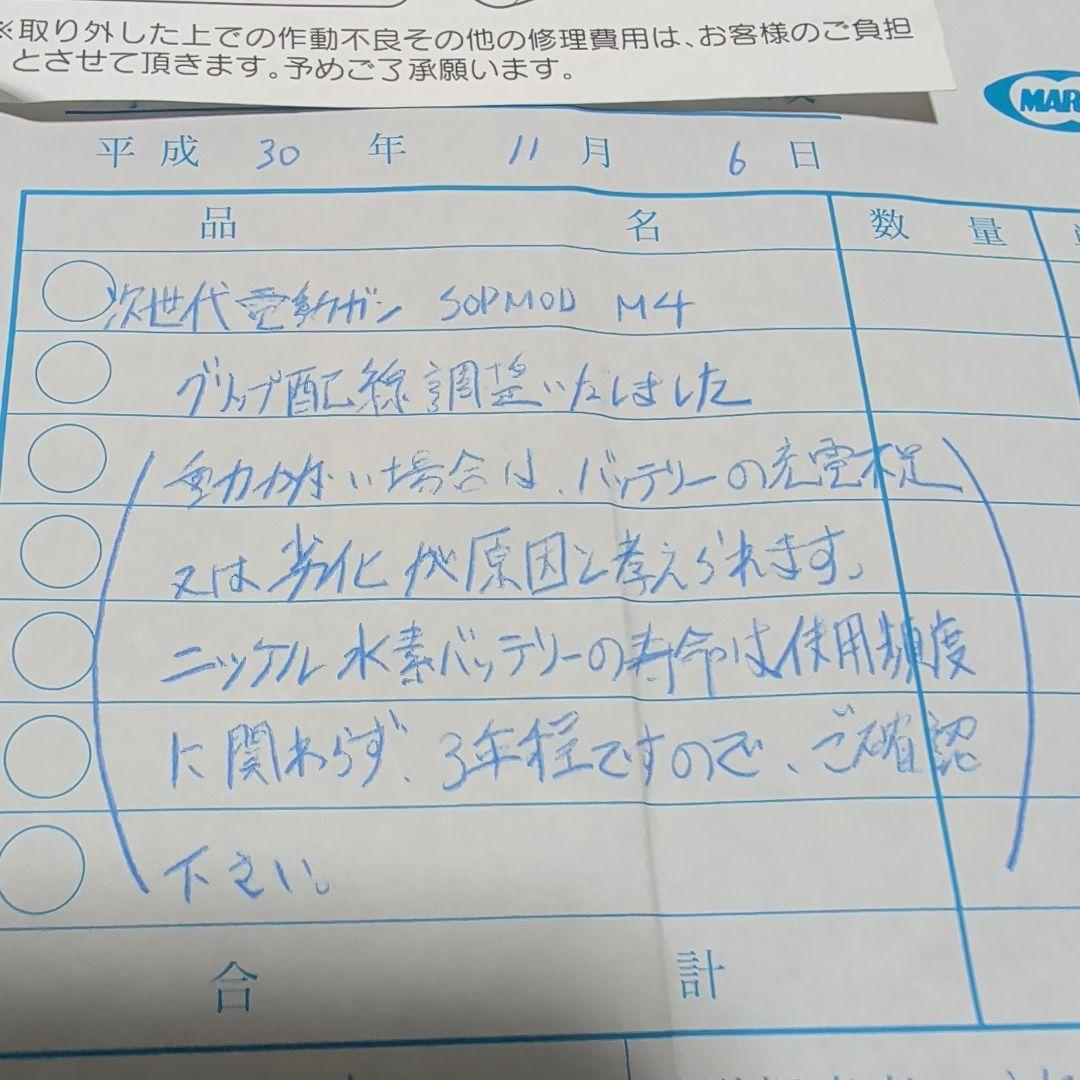 ※取り外した上での作動不良その他の修理費用は、お客様のご負担
とさせて頂きます。予めご了承願います。
MAR
平成 30 年 11 月 6 日
品 名 数 量
次世代電動ガン SOPMOD M4
グリップ配線調整いたしました
動かない場合は、バッテリーの充電不足
又は劣化が原因と考えられます。
ニッケル水素バッテリーの寿命は使用頻度
に関わらず、3年程ですので、ご確認
下さい。
合 計